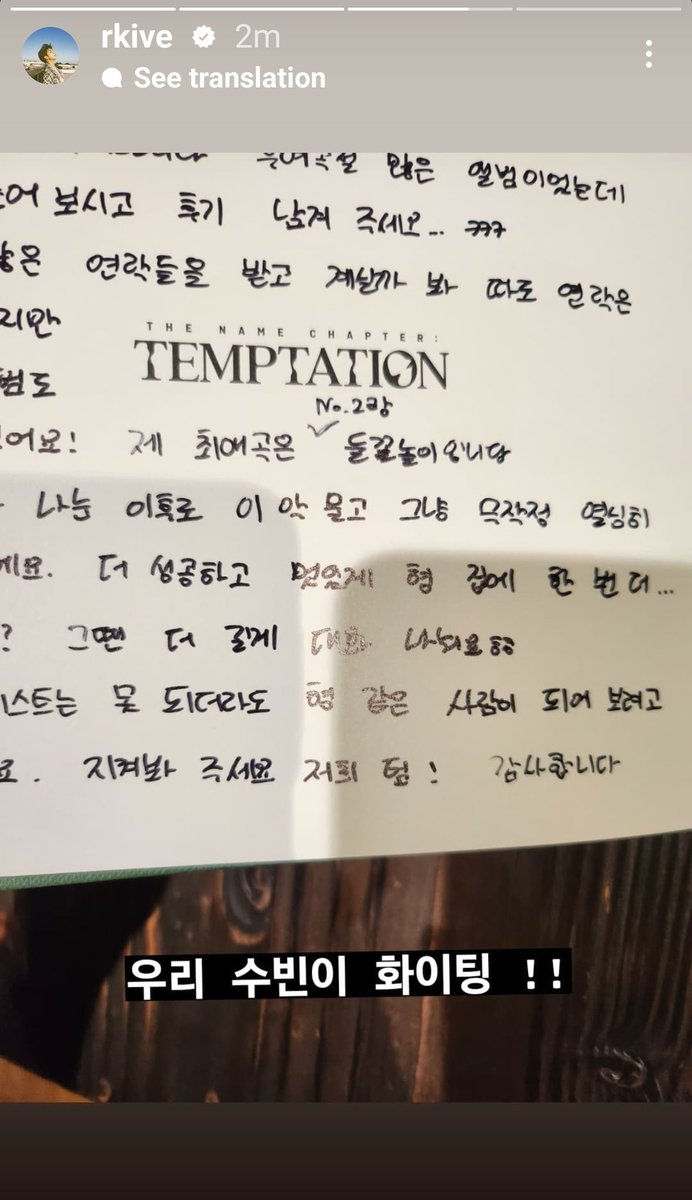 rkive 2m
See translation
많은 앨범이었는데
보시고 후기 남겨 주세요... ㅋㅋㅋ
연락들을 받고 계실까 봐 따로 연락은
지만
THE NAME CHAPTER:
TEMPTATION
No.2랑
어요! 제 최애곡은 ✓ 들꽃놀이입니다
나눈 이후로 이 악 물고 그냥 무작정 열심히
더 성공하고 멋있게 형 집에 한 번 더...
? 그땐 더 길게 대화 나눠요ㅎㅎ
스트는 못 되더라도 형 같은 사람이 되어 보려고
요. 지켜봐 주세요 저희 팀! 감사합니다
우리 수빈이 화이팅 !!